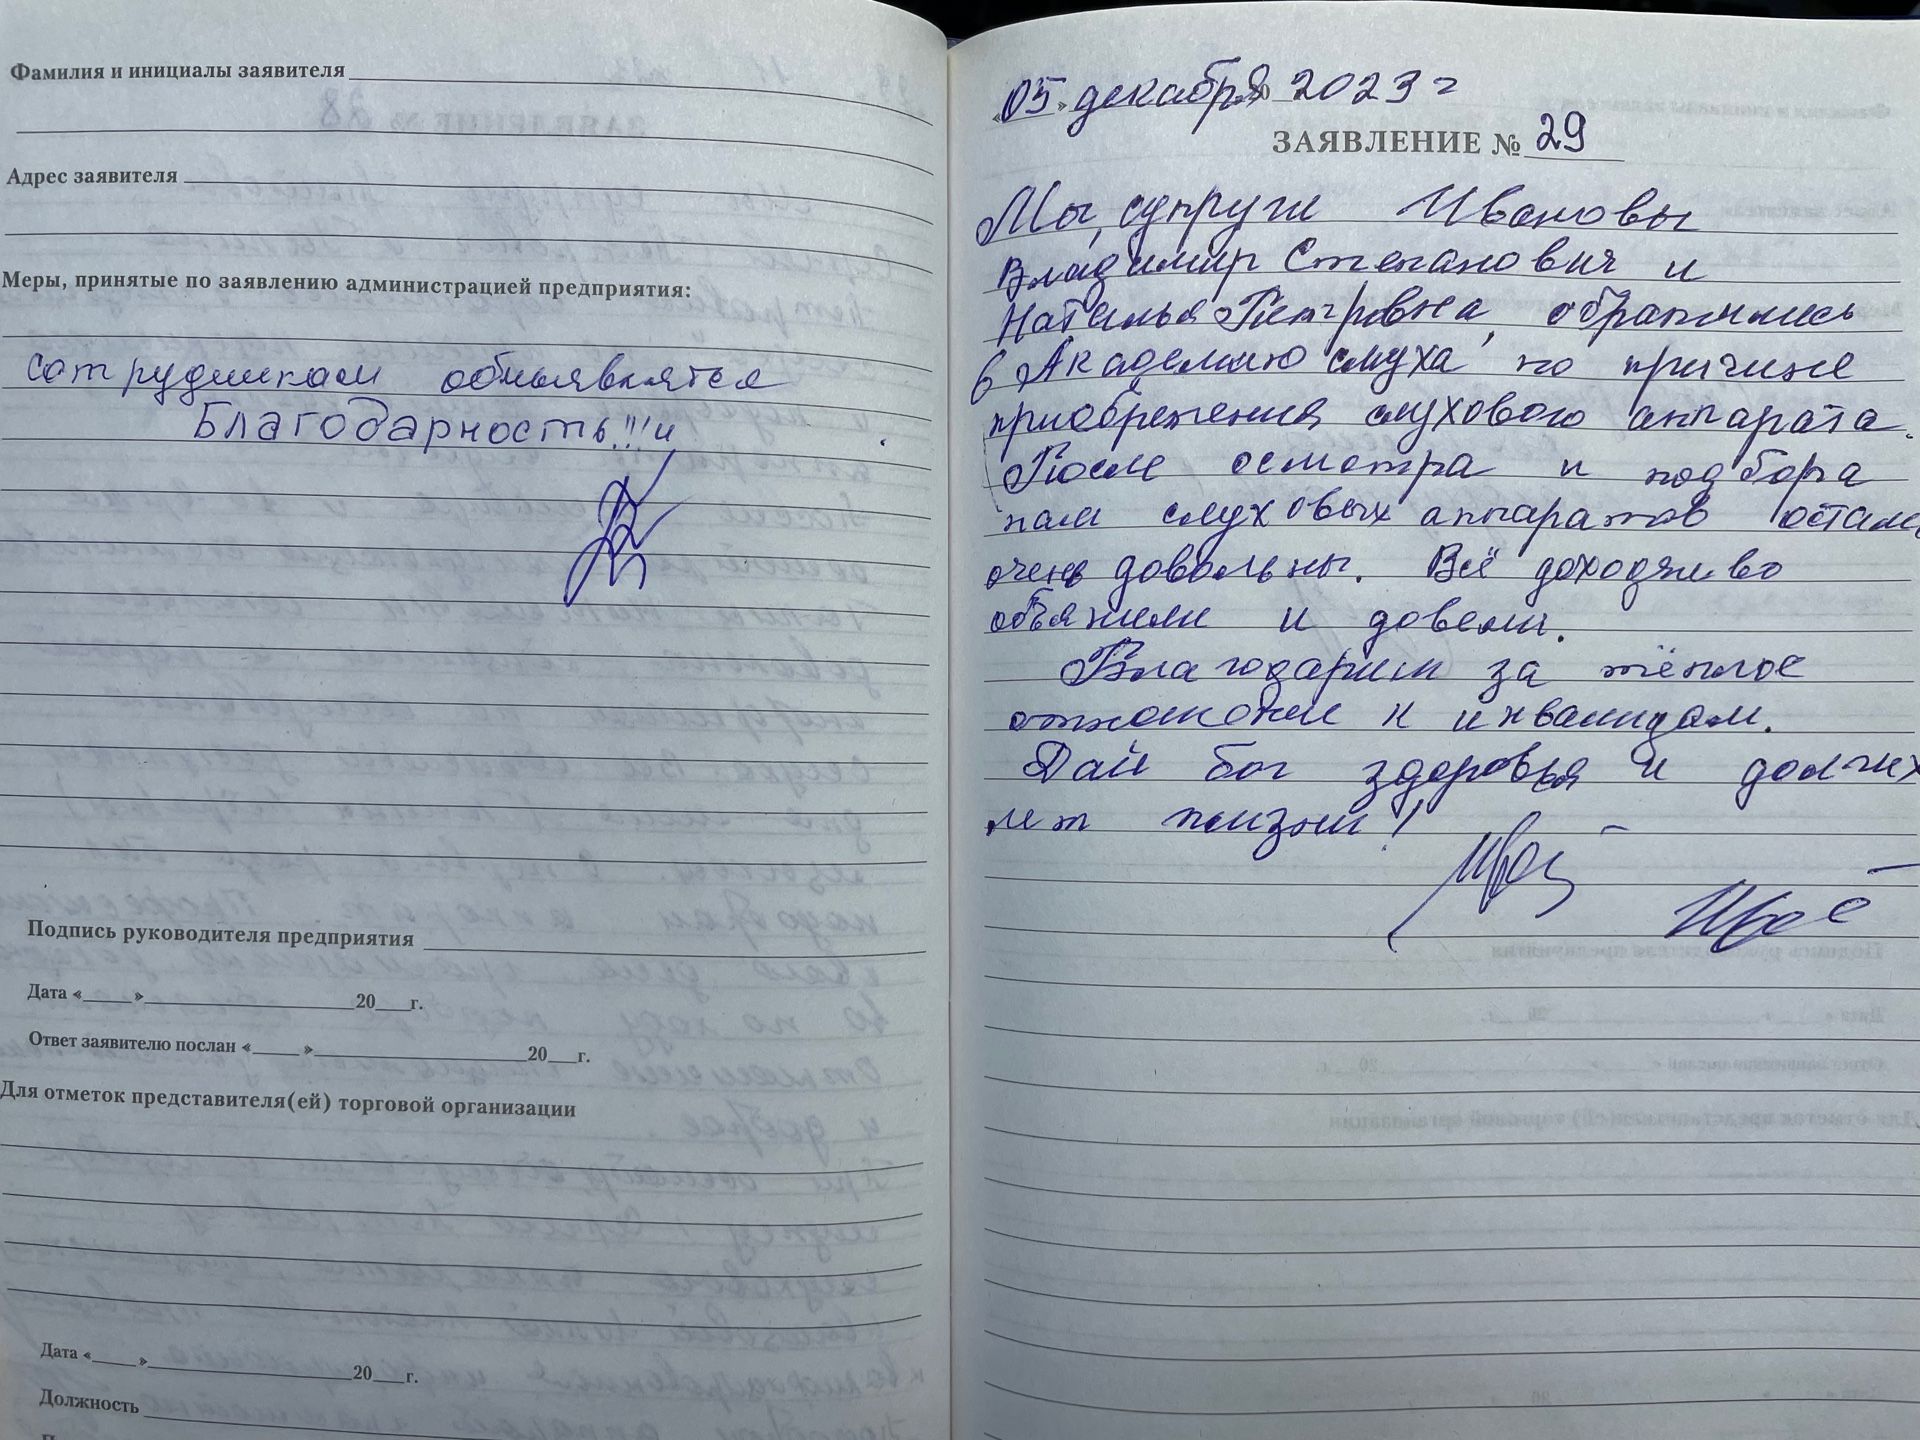 Фамилия и инициалы заявителя
Адрес заявителя
Меры, принятые по заявлению администрацией предприятия:
сотрудникам объявляется
Благодарность!!!
Подпись руководителя предприятия
Дата «____»____20__г.
Ответ заявителю послан «____»____20__г.
Для отметок представителя(ей) торговой организации
Дата «____»____20__г.
Должность
«05» декабря 2023 г
ЗАЯВЛЕНИЕ № 29
Мы, супруги Ивановы
Владимир Степанович и
Наталья Петровна, обратились
в Академию слуха по причине
приобретения слухового аппарата.
После осмотра и подбора
нам слуховых аппаратов остали
очень довольны. Всё доходчиво
объяснили и довели.
Благодарим за тёплое
отношение к инвалидам.
Дай бог здоровья и долгих
лет жизни!